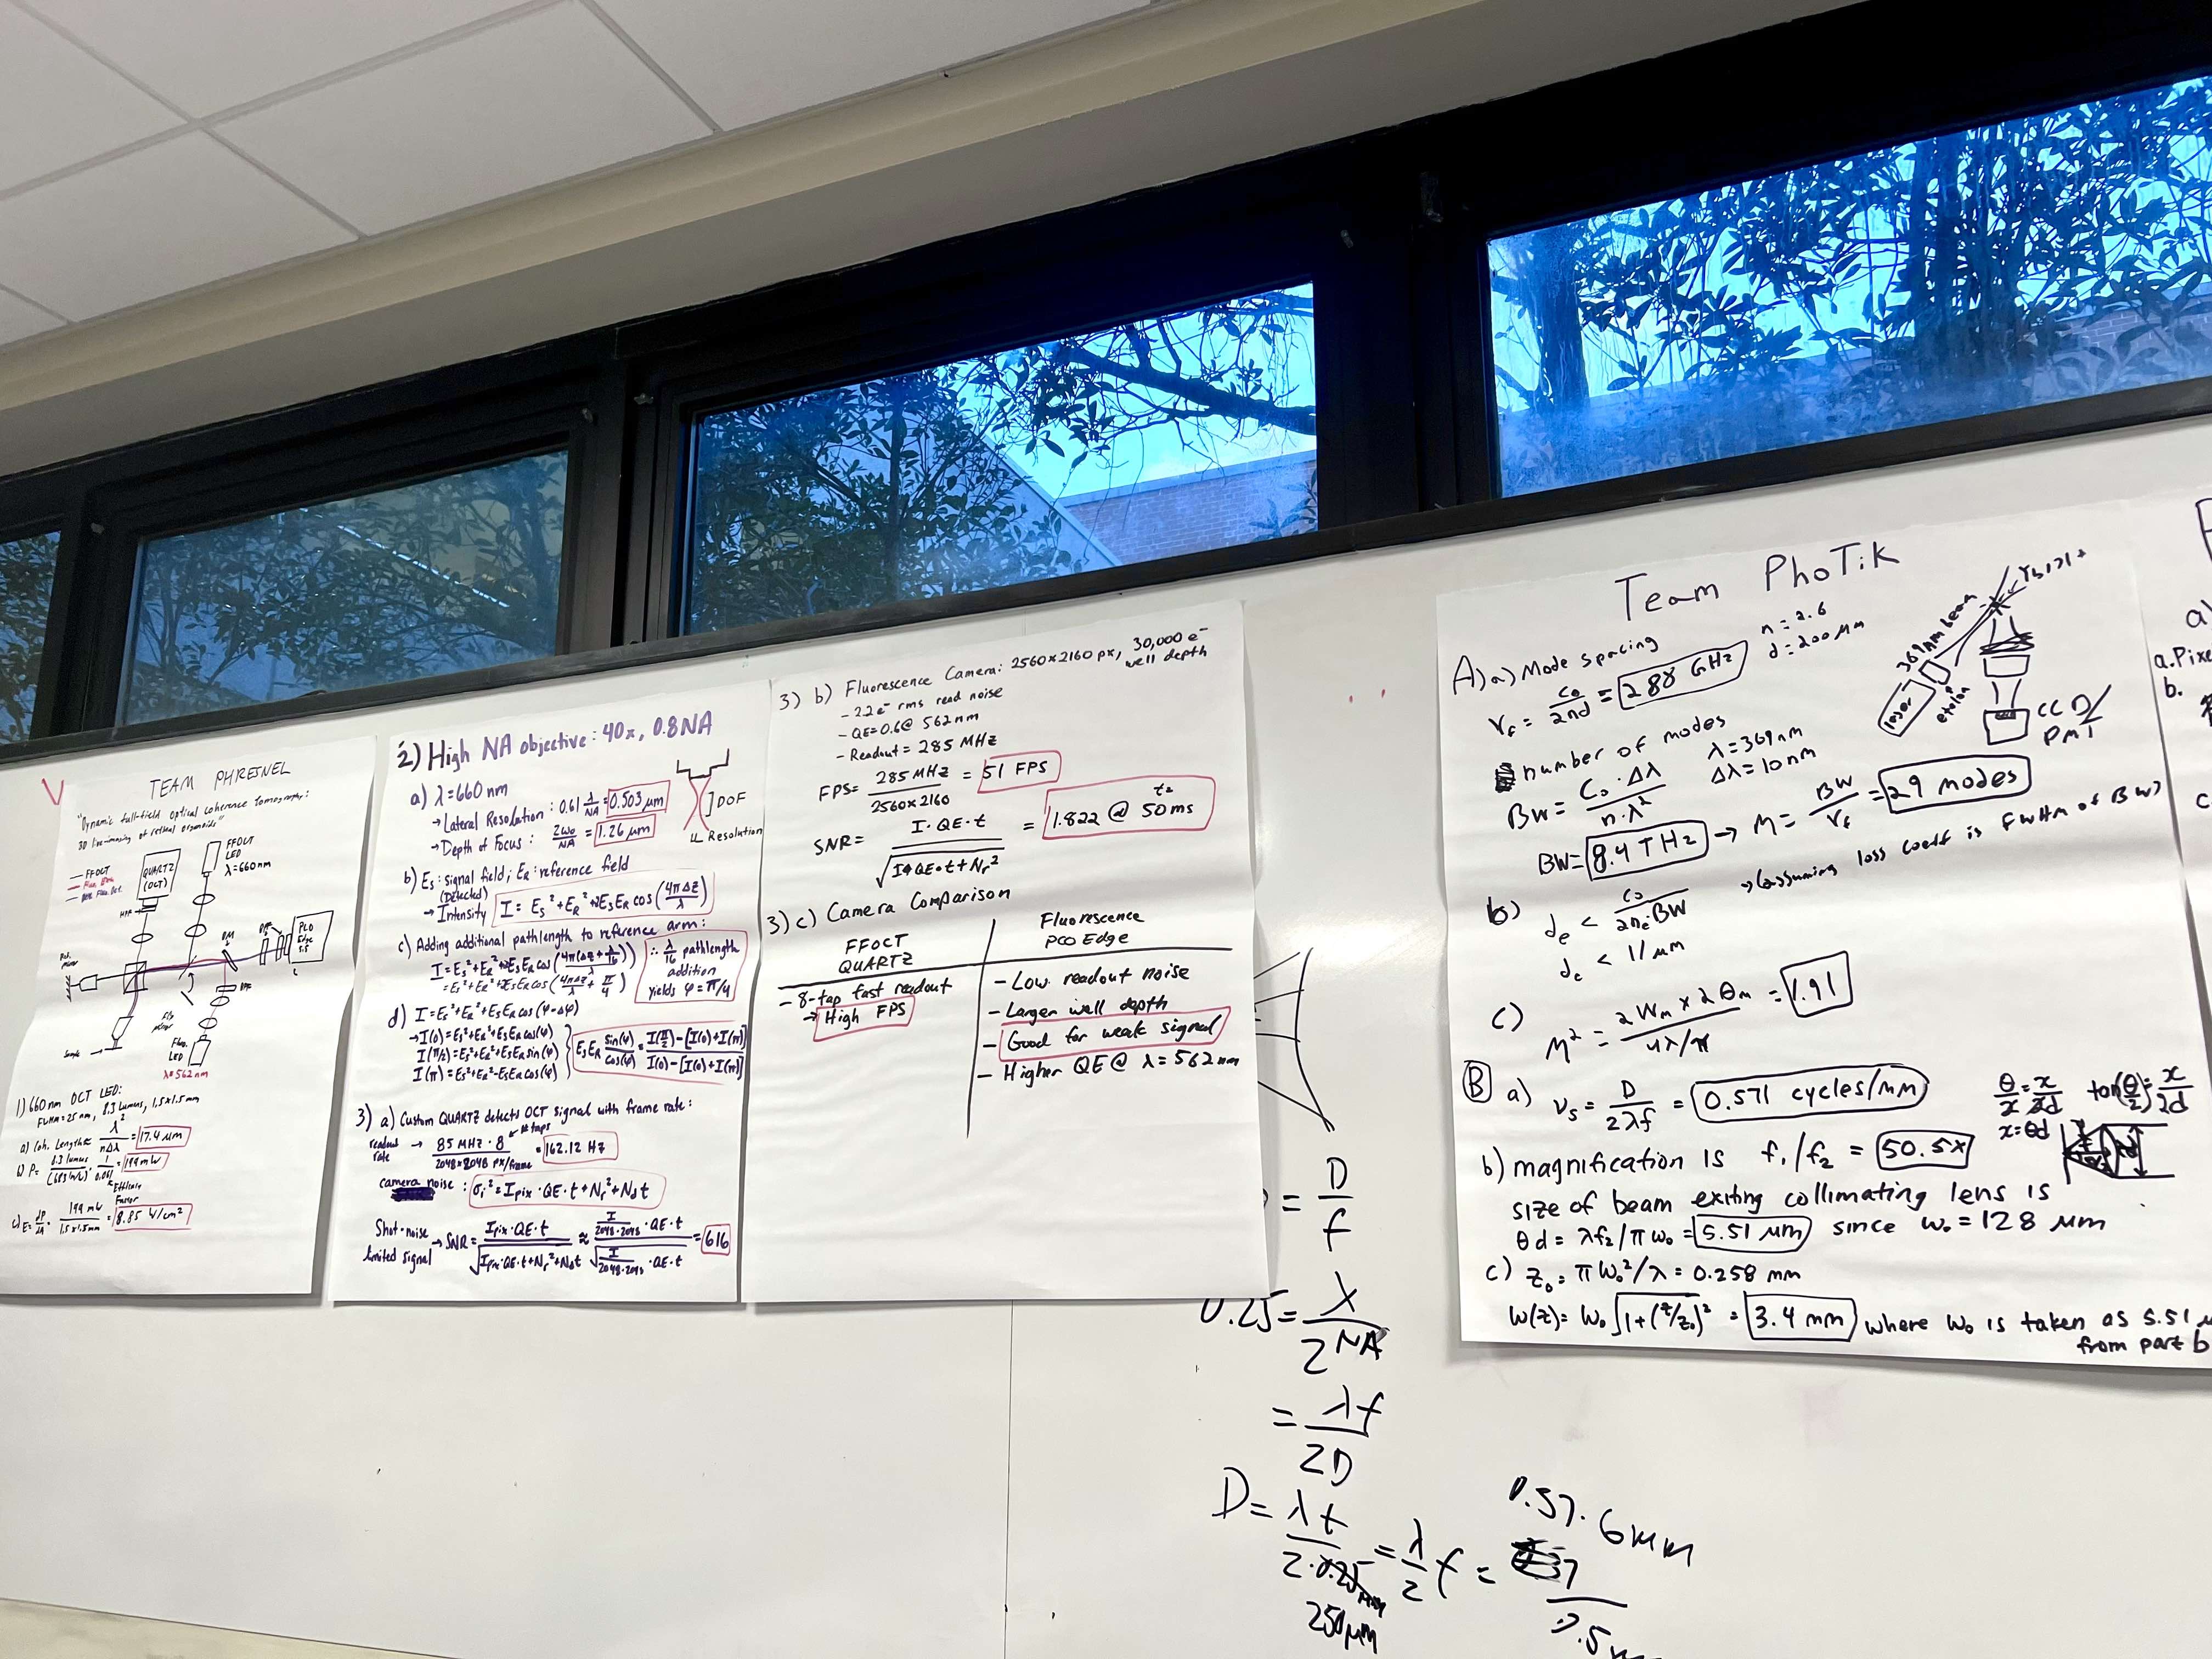 TEAM PHRESNEL
"Dynamic full-field optical coherence tomography:
3D live-imaging of retinal organoids"
FFOCT
QUARTZ
(OCT)
FFOCT
LED
λ=660nm
HPF
DM
PCO
Edge
5.5
Ref.
mirror
Flip
mirror
Sample
Fluo.
LED
λ=562nm
1) 660nm OCT LED:
FWHM=25 nm, 8.3 lumens, 1.5x1.5mm
a) Coh. Length ≈ λ²/nΔλ = 17.4 μm
b) P= 8.3 lumens/(683 lm/W) · 1/0.061 = 199mW
Efficacy
Factor
c) E= dP/dA = 199 mW/1.5x1.5mm = 8.85 W/cm²
2) High NA objective: 40x, 0.8NA
a) λ=660nm
→Lateral Resolution: 0.61 λ/NA = 0.503 μm
→Depth of Focus: 2w₀/NA = 1.26 μm
DOF
Resolution
b) Es: signal field; ER: reference field
(Detected)
→ Intensity I = Es²+ER²+2EsER cos(4πΔz/λ)
c) Adding additional pathlength to reference arm:
I=Es²+ER²+2EsER cos(4π(Δz+λ/16)/λ)
=Es²+ER²+2EsER cos(4πΔz/λ + π/4)
∴ λ/16 pathlength
addition
yields φ=π/4
d) I=Es²+ER²+EsER cos(φ-Δφ)
→I(0)=Es²+ER²+EsER cos(φ)
I(π/2)=Es²+ER²+EsER sin(φ)
I(π)=Es²+ER²-EsER cos(φ)
EsER sin(φ)/cos(φ) = I(π/2)-[I(0)+I(π)]/I(0)-[I(0)+I(π)]
3) a) Custom QUARTZ detects OCT signal with frame rate:
readout
rate → 85 MHz·8/2048x2048 px/frame = 162.12 Hz
# taps
camera noise: σi²=Ipix·QE·t+Nr²+Nd t
Shot-noise
limited signal → SNR= Ipix·QE·t/√Ipix·QE·t+Nr²+Nd t ≈ I/2048·2048·QE·t/√I/2048·2048·QE·t = 616
3) b) Fluorescence Camera: 2560x2160 px, 30,000 e⁻
well depth
- 2.2e⁻ rms read noise
- QE=0.6@ 562nm
- Readout = 285 MHz
FPS= 285 MHz/2560x2160 = 51 FPS
SNR= I·QE·t/√I·QE·t+Nr² = 1.822 @ 50ms
3) c) Camera Comparison
FFOCT
QUARTZ
Fluorescence
PCO Edge
- 8-tap fast readout
→ High FPS
- Low readout noise
- Larger well depth
- Good for weak signal
- Higher QE @ λ=562nm
= D/f
0.25= λ/2NA
= λf/2D
D= λf/2·0.25 = λ/2 f =
250μm
Team PhoTik
A) a) Mode spacing
n=2.6
d=200 μm
νf = c₀/2nd = 288 GHz
number of modes
λ=369nm
Δλ=10nm
BW= C₀·Δλ/n·λ²
BW= 8.4 THz → M= BW/νf = 29 modes
→(assuming loss coeff is FWHM of BW)
369nm beam
Yb171+
laser
etalon
CCD/
PMT
b) de < c₀/2neBW
de < 11 μm
c) M² = 2Wm x 2θm/4λ/π = 1.91
B a) νs = D/2λf = 0.571 cycles/mm
x=θd
tan(θ/2)= x/2d
b) magnification is f₁/f₂ = 50.5x
size of beam exiting collimating lens is
θd = λf₂/πw₀ = 5.51 μm since w₀=128 μm
c) z₀= πW₀²/λ = 0.258 mm
W(z)= W₀√1+(z/z₀)² = 3.4 mm where w₀ is taken as 5.51
from part b
a)
a. Pixe
b.
c